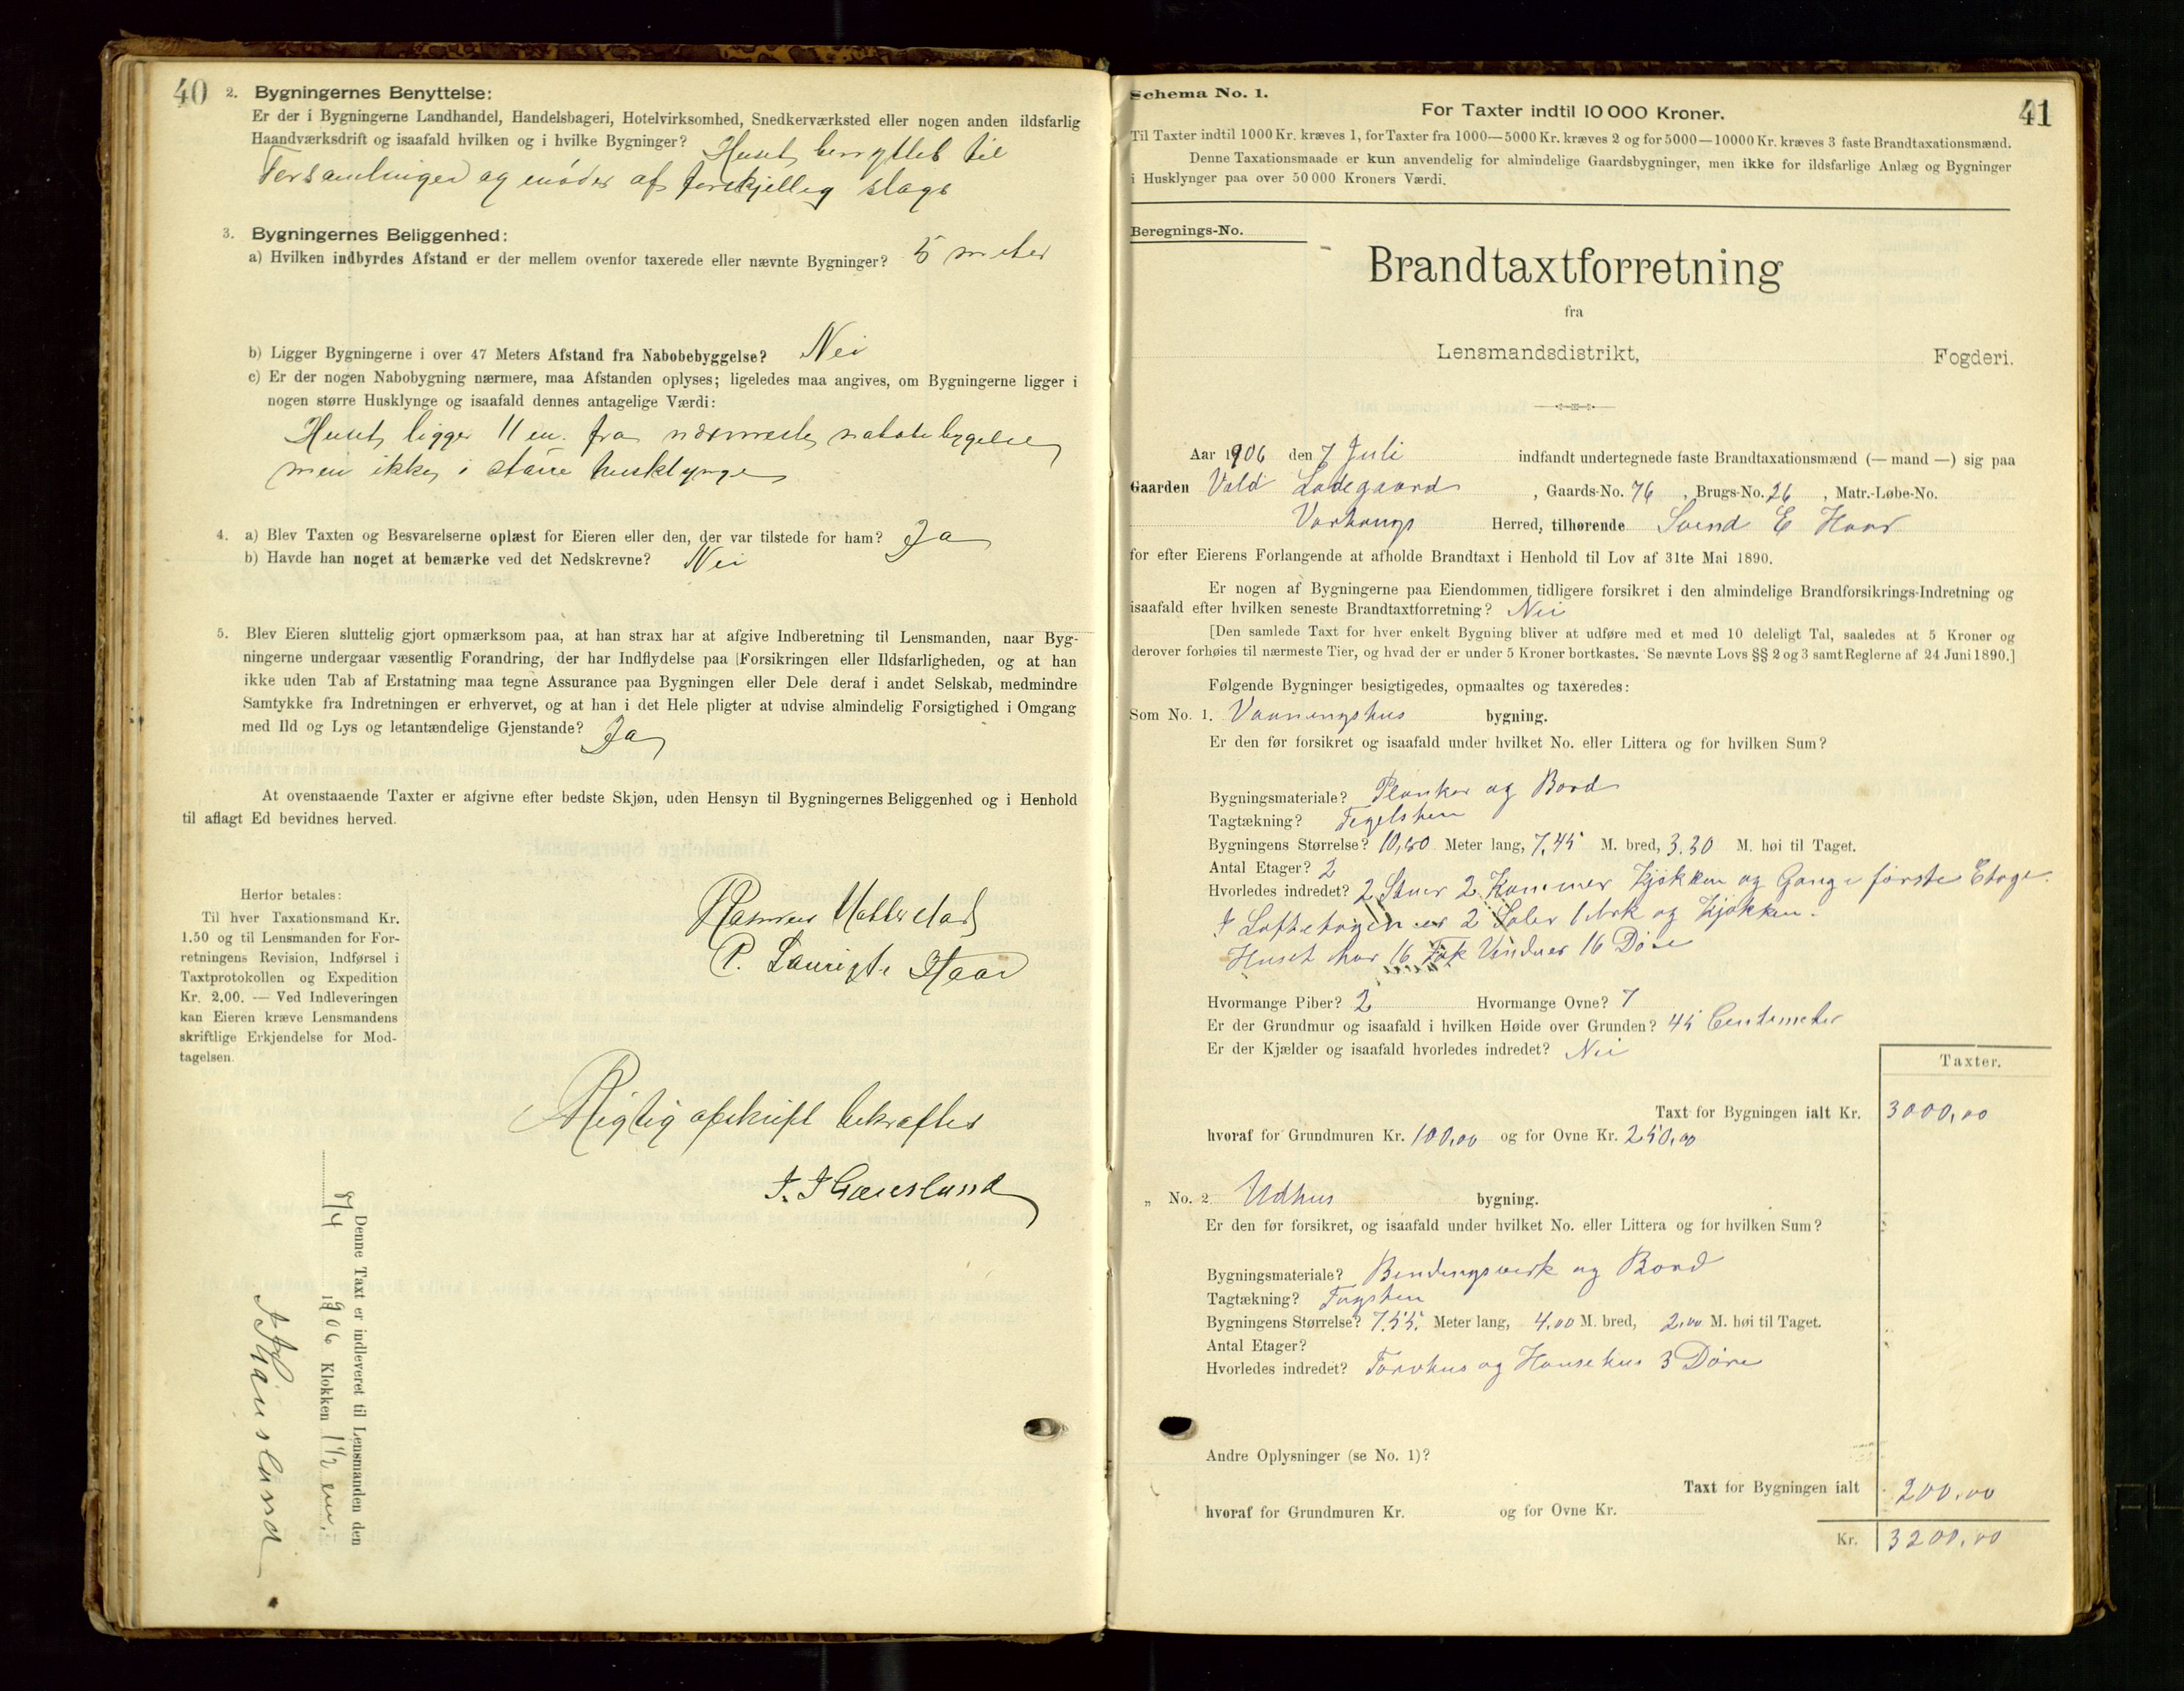 40
2. Bygningernes Benyttelse:
Er der i Bygningerne Landhandel, Handelsbageri, Hotelvirksomhed, Snedkerværksted eller nogen anden ildsfarlig
Haandværksdrift og isaafald hvilken og i hvilke Bygninger? Huset benyttes til
Forsamlinger og møder af forskjellig slags
3. Bygningernes Beliggenhed:
a) Hvilken indbyrdes Afstand er der mellem ovenfor taxerede eller nævnte Bygninger? 5 meter
b) Ligger Bygningerne i over 47 Meters Afstand fra Nabobebyggelse? Nei
c) Er der nogen Nabobygning nærmere, maa Afstanden oplyses; ligeledes maa angives, om Bygningerne ligger i
nogen større Husklynge og isaafald dennes antagelige Værdi:
Huset ligger 11 m. fra nærmeste nabobebygelse
men ikke i større husklynge
4. a) Blev Taxten og Besvarelserne oplæst for Eieren eller den, der var tilstede for ham? Ja
b) Havde han noget at bemærke ved det Nedskrevne? Nei
5. Blev Eieren sluttelig gjort opmærksom paa, at han strax har at afgive Indberetning til Lensmanden, naar Byg-
ningerne undergaar væsentlig Forandring, der har Indflydelse paa Forsikringen eller Ildsfarligheden, og at han
ikke uden Tab af Erstatning maa tegne Assurance paa Bygningen eller Dele deraf i andet Selskab, medmindre
Samtykke fra Indretningen er erhvervet, og at han i det Hele pligter at udvise almindelig Forsigtighed i Omgang
med Ild og Lys og letantændelige Gjenstande? Ja
At ovenstaaende Taxter er afgivne efter bedste Skjøn, uden Hensyn til Bygningernes Beliggenhed og i Henhold
til aflagt Ed bevidnes herved.
Herfor betales:
Til hver Taxationsmand Kr.
1.50 og til Lensmanden for For-
retningens Revision, Indførsel i
Taxtprotokollen og Expedition
Kr. 2.00. — Ved Indleveringen
kan Eieren kræve Lensmandens
skriftlige Erkjendelse for Mod-
tagelsen.
Rasmus
P. Staar
Rigtig afskrift bekræftes
Denne Taxt er indleveret til Lensmanden den
9/4 1906 Klokken 1 1/2 em.
Schema No. 1.
41
For Taxter indtil 10 000 Kroner.
Til Taxter indtil 1000 Kr. kræves 1, for Taxter fra 1000—5000 Kr. kræves 2 og for 5000—10000 Kr. kræves 3 faste Brandtaxationsmænd.
Denne Taxationsmaade er kun anvendelig for almindelige Gaardsbygninger, men ikke for ildsfarlige Anlæg og Bygninger
i Husklynger paa over 50 000 Kroners Værdi.
Beregnings-No.
Brandtaxtforretning
fra
Lensmandsdistrikt, Fogderi.
Aar 1906 den 7 Juli indfandt undertegnede faste Brandtaxationsmænd (— mand —) sig paa
Gaarden Vold Ladegaard, Gaards-No. 76, Brugs-No. 26, Matr.-Løbe-No.
Varhougs Herred, tilhørende Svend E Haar
for efter Eierens Forlangende at afholde Brandtaxt i Henhold til Lov af 31te Mai 1890.
Er nogen af Bygningerne paa Eiendommen tidligere forsikret i den almindelige Brandforsikrings-Indretning og
isaafald efter hvilken seneste Brandtaxtforretning? Nei
[Den samlede Taxt for hver enkelt Bygning bliver at udføre med et med 10 deleligt Tal, saaledes at 5 Kroner og
derover forhøies til nærmeste Tier, og hvad der er under 5 Kroner bortkastes. Se nævnte Lovs §§ 2 og 3 samt Reglerne af 24 Juni 1890.]
Følgende Bygninger besigtigedes, opmaaltes og taxeredes:
Som No. 1. Vaaningshus bygning.
Er den før forsikret og isaafald under hvilket No. eller Littera og for hvilken Sum?
Bygningsmateriale? Planker og Bord
Tagtækning? Tegelsten
Bygningens Størrelse? 10,80 Meter lang, 7.45 M. bred, 3.30 M. høi til Taget.
Antal Etager? 2
Hvorledes indredet? 2 Stuer 2 Kammer Kjøkken og Gang i første Etage.
I Loftetagen er 2 Saler 1 Ark og Kjøkken.
Huset har 16 Fak Vinduer 16 Døre
Hvormange Piber? 2 Hvormange Ovne? 7
Er der Grundmur og isaafald i hvilken Høide over Grunden? 45 Centimeter
Er der Kjælder og isaafald hvorledes indredet? Nei
Taxter.
Taxt for Bygningen ialt Kr. 3000,00
hvoraf for Grundmuren Kr. 100,00 og for Ovne Kr. 250,00
„ No. 2 Udhus bygning.
Er den før forsikret, og isaafald under hvilket No. eller Littera og for hvilken Sum?
Bygningsmateriale? Bindingsverk og Bord
Tagtækning? Tagsten
Bygningens Størrelse? 7.55 Meter lang, 4.00 M. bred, 2.00 M. høi til Taget.
Antal Etager?
Hvorledes indredet? Torvhus og Hønsehus 3 Døre
Andre Oplysninger (se No. 1)?
Taxt for Bygningen ialt 200,00
hvoraf for Grundmuren Kr. og for Ovne Kr.
Kr. 3200,00